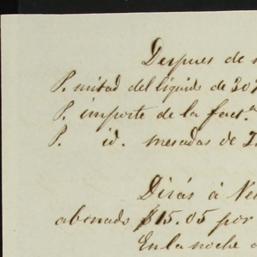 Despues de
P. mitad del liquido de 20
P. importe de la fact.ª
P. id. mesadas de
Dirás á
abonado $15.05 por
En la noche